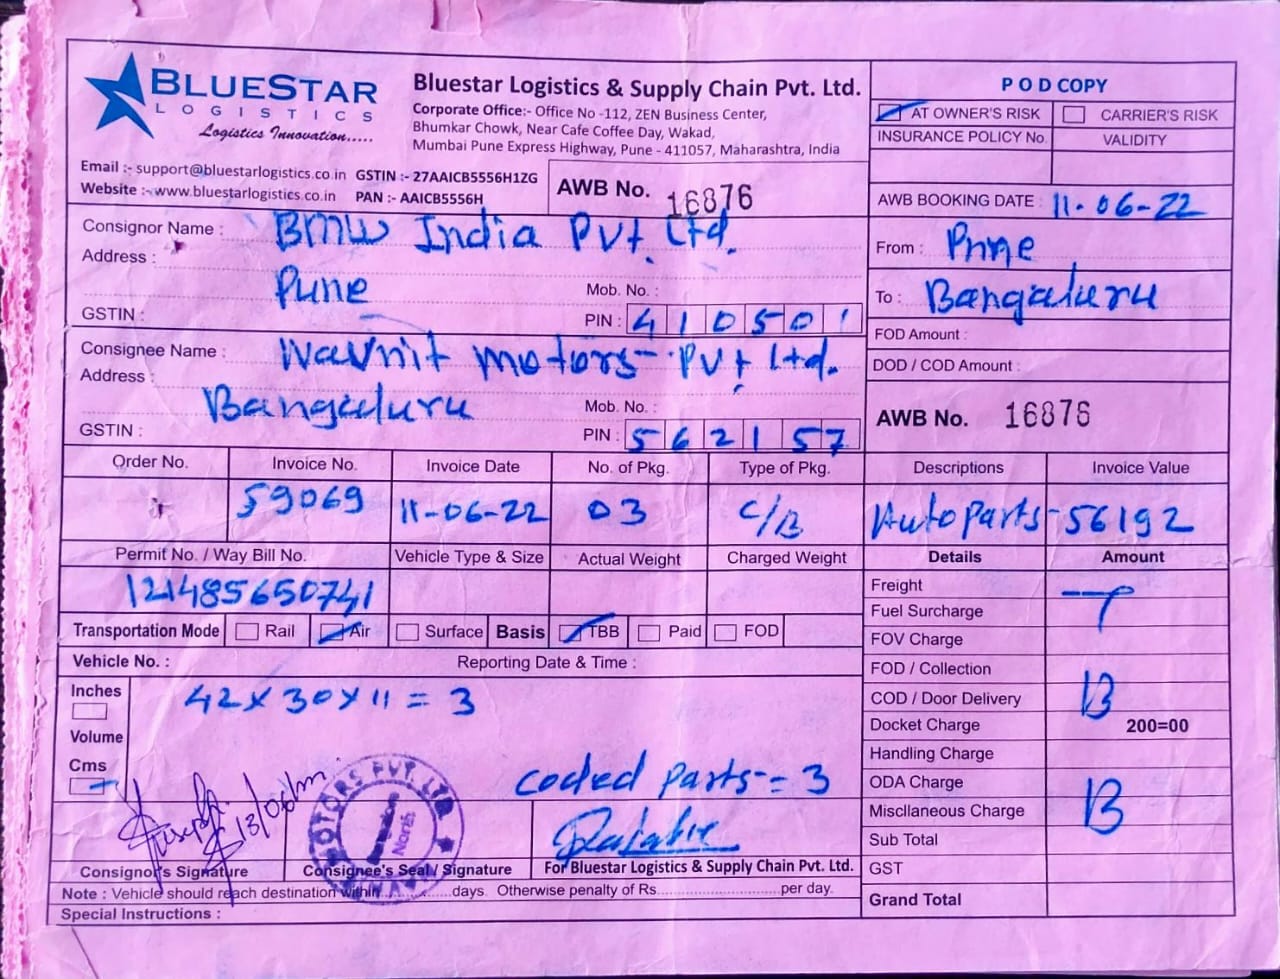 BLUESTAR
LOGISTICS
Logistics Innovation.....
Email :- support@bluestarlogistics.co.in GSTIN :- 27AAICB5556H1ZG
Website :- www.bluestarlogistics.co.in PAN :- AAICB5556H
Bluestar Logistics & Supply Chain Pvt. Ltd.
Corporate Office:- Office No -112, ZEN Business Center,
Bhumkar Chowk, Near Cafe Coffee Day, Wakad,
Mumbai Pune Express Highway, Pune - 411057, Maharashtra, India
AWB No. 16876
POD COPY
AT OWNER'S RISK CARRIER'S RISK
INSURANCE POLICY No. VALIDITY
AWB BOOKING DATE : 11-06-22
From : Pune
To : Bangaluru
FOD Amount :
DOD / COD Amount :
AWB No. 16876
Consignor Name : BMW India Pvt. Ltd.
Address :
Pune Mob. No. :
GSTIN : PIN : 410501
Consignee Name : Navnit motors Pvt Ltd.
Address :
Bangaluru Mob. No. :
GSTIN : PIN : 562157
Order No. Invoice No. Invoice Date No. of Pkg. Type of Pkg. Descriptions Invoice Value
59069 11-06-22 03 C/B Autoparts- 56192
Permit No. / Way Bill No. Vehicle Type & Size Actual Weight Charged Weight
121485650741
Transportation Mode Rail Air Surface Basis TBB Paid FOD
Vehicle No. : Reporting Date & Time :
Inches
Volume
Cms
42 x 30 x 11 = 3
coded parts- = 3
Details Amount
Freight
Fuel Surcharge
FOV Charge
FOD / Collection
COD / Door Delivery B
Docket Charge 200=00
Handling Charge
ODA Charge
Miscllaneous Charge B
Sub Total
GST
Grand Total
MOTORS PVT. LTD.
North
Consignor's Signature Consignee's Seal / Signature For Bluestar Logistics & Supply Chain Pvt. Ltd.
Note : Vehicle should reach destination within..............days. Otherwise penalty of Rs.........................per day.
Special Instructions :